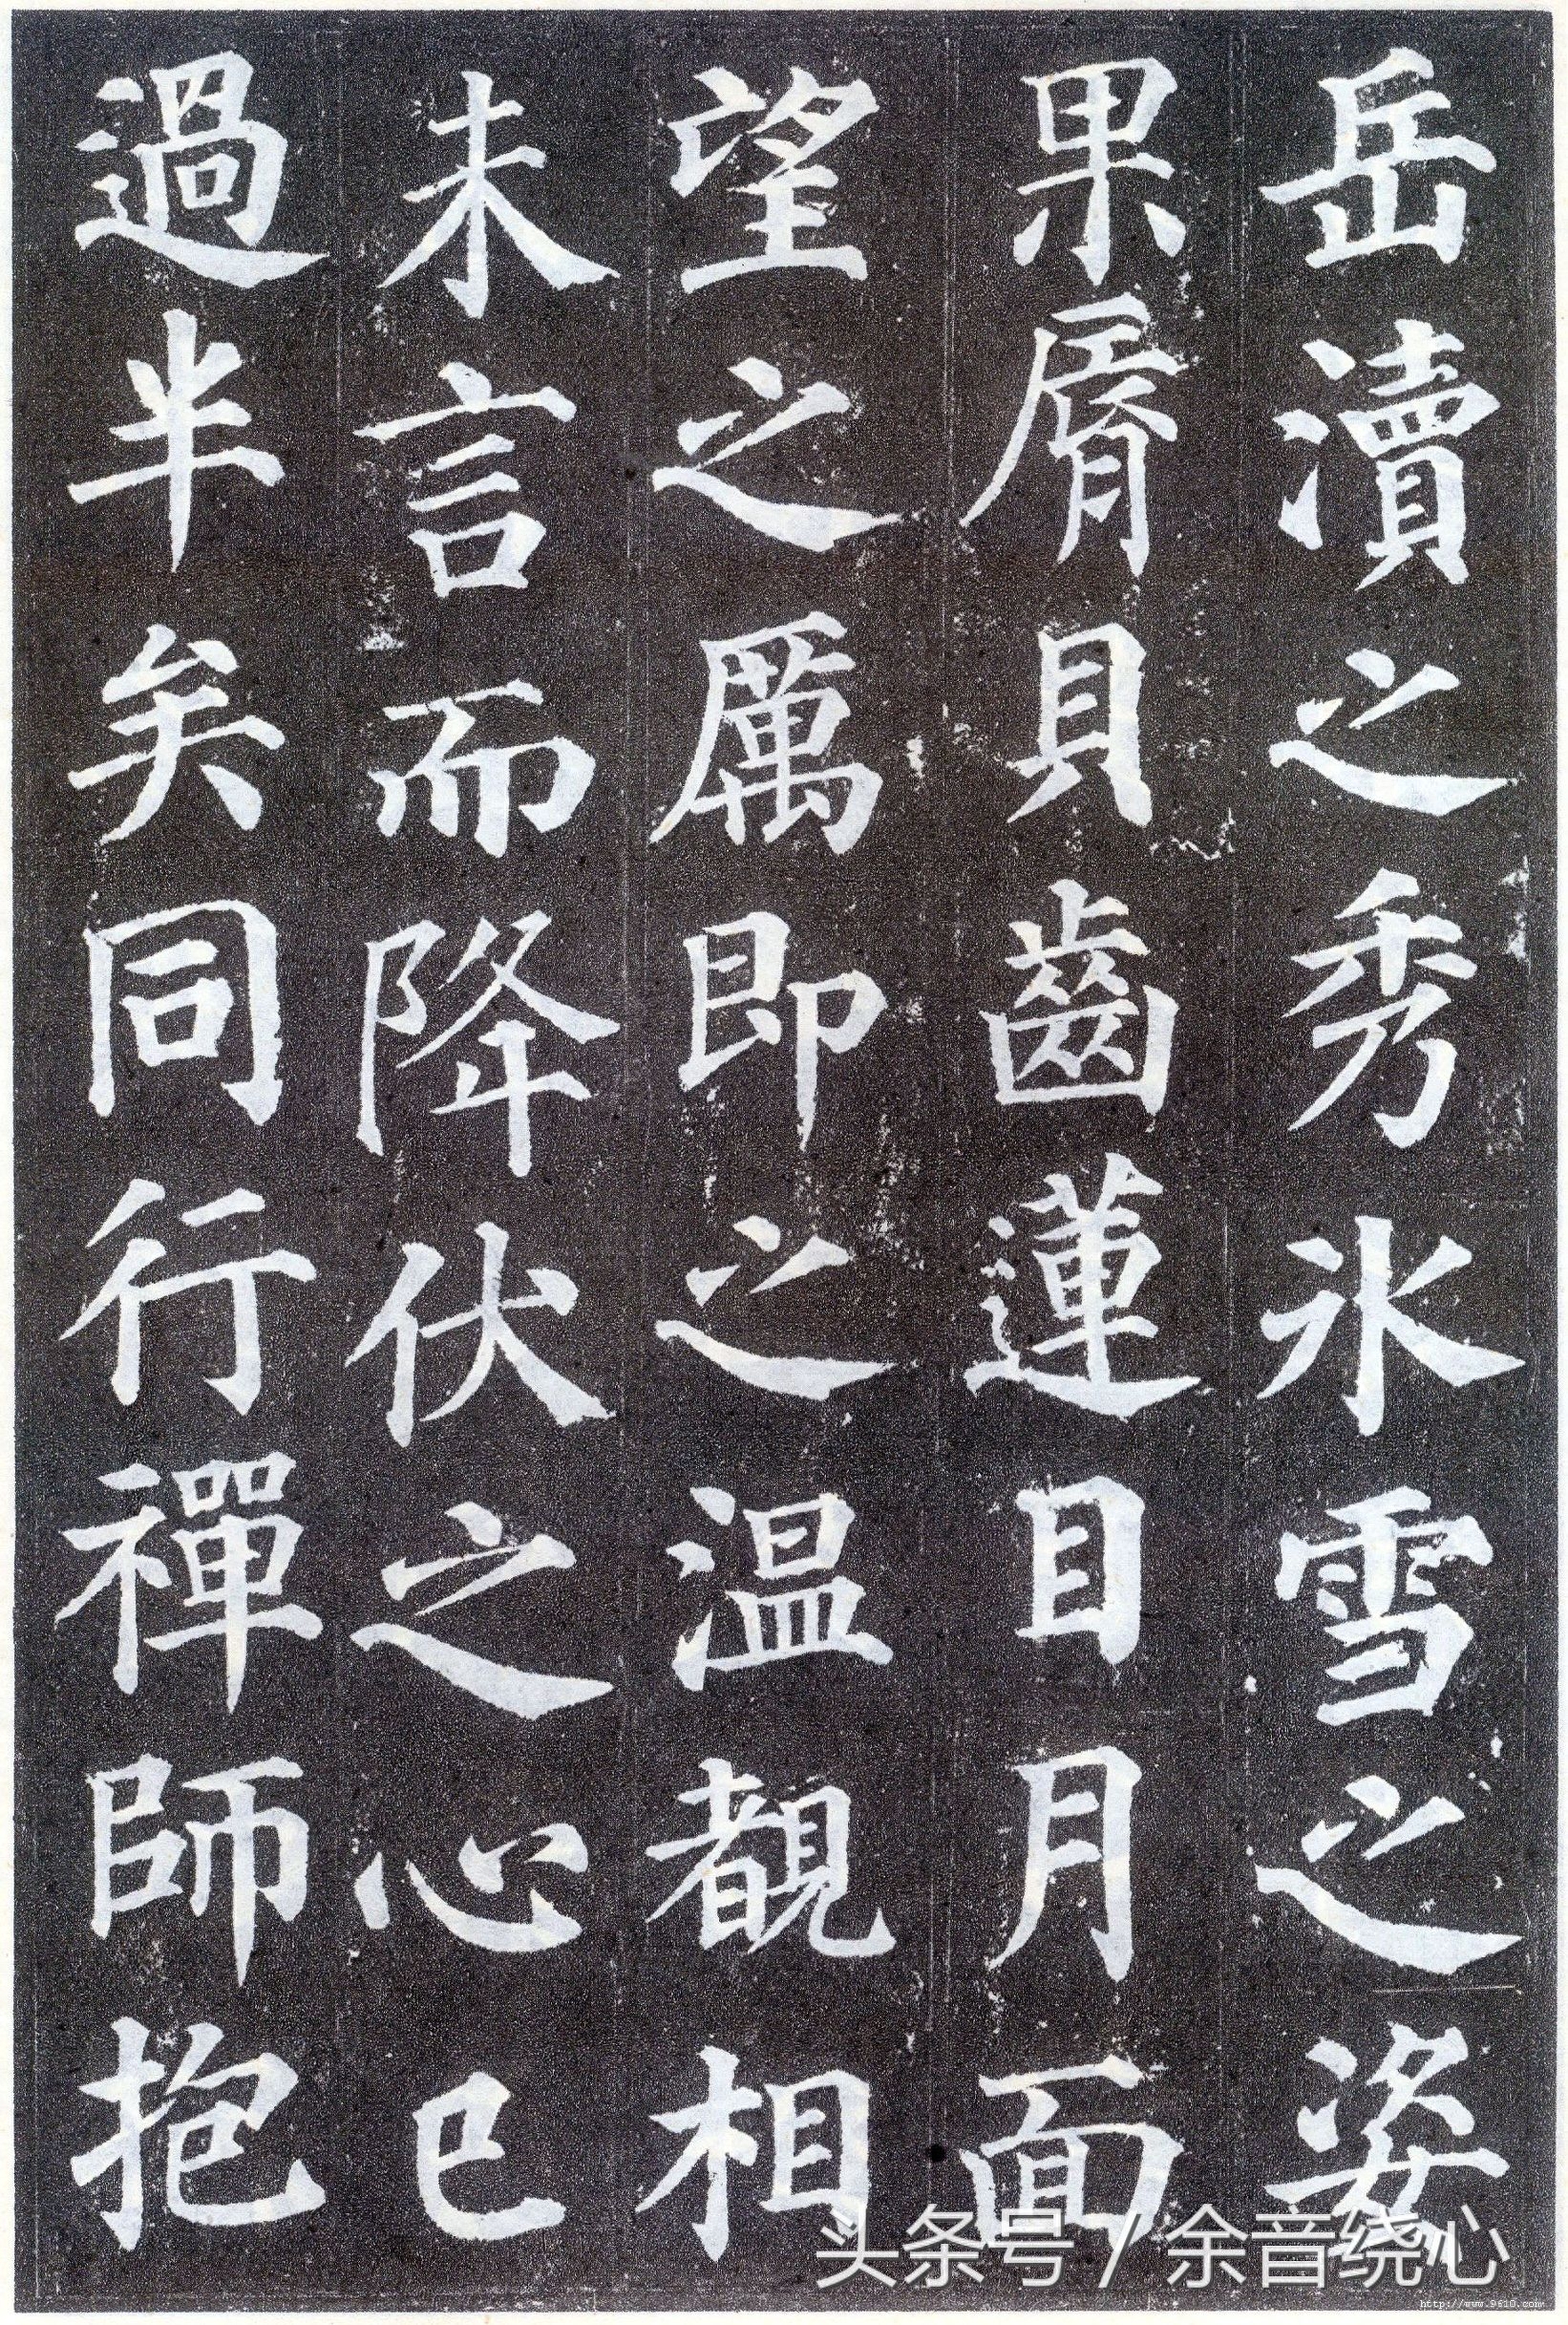 岳瀆之秀氷雪之姿
果脣貝齒蓮目月面
望之厲即之温覩相
未言而降伏之心已
過半矣同行禪師抱
头条号 / 余音绕心
http://www.9610.com